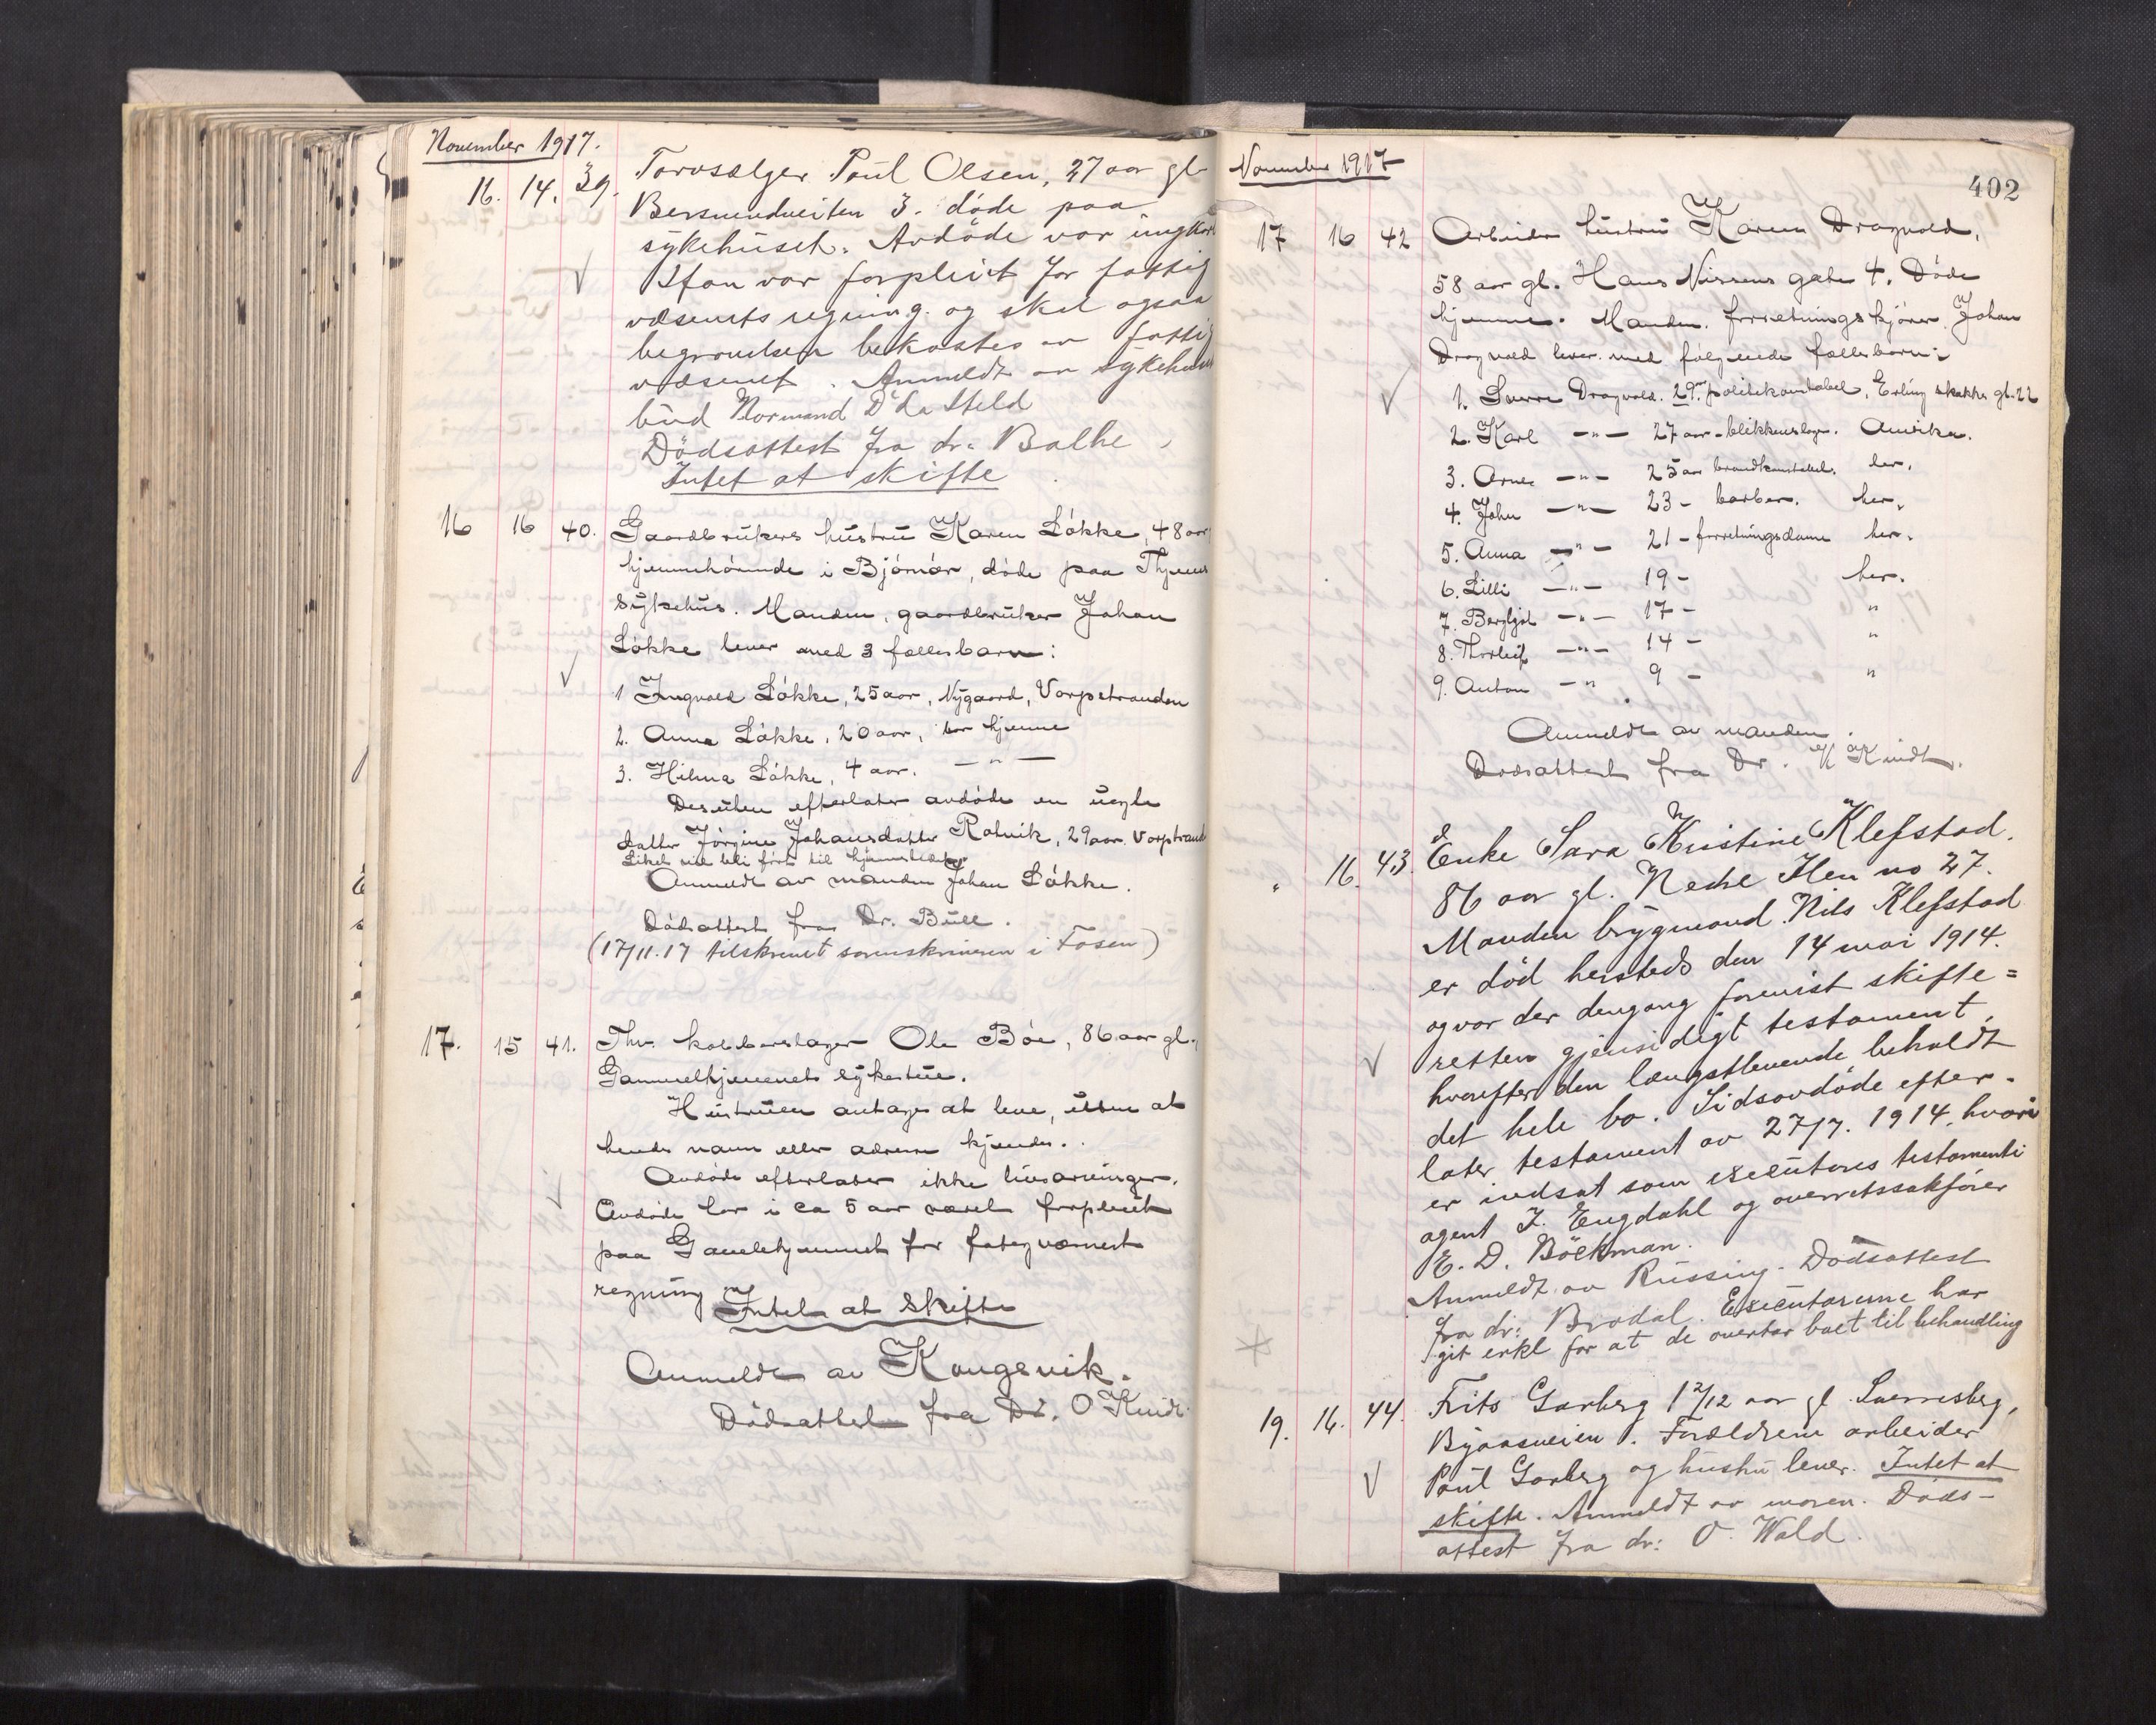 November 1917.
16. 14. 39. Torvsælger Paul Olsen, 27 aar gl
Bersvendveiten 3. døde paa
sykehuset. Avdøde var ungkar
Han var forpleiet for fattig
væsenets regning. og skal ogsaa
begravelsen bekostes av fattig
væsenet. Anmeldt av sykehus
bud Normand
Dödsattest fra dr. Balke
Intet at skifte
16 16 40. Gaardbrukers hustru Karen Løkke, 48 aar
hjemmehørende i Bjørnør, døde paa Thjems
Sykehus. Manden, gaardbruker Johan
Løkke lever med 3 fællesbarn:
1 Ingvald Løkke, 25 aar, Nygaard, Vorpstranden
2. Anna Løkke, 20 aar, bor hjemme
3. Hilma Løkke, 4 aar. — " —
Desuten efterlater avdøde en uegte
datter Jörgine Johansdatter Ratvik, 29 aar. Vorpstrand
Liket vil bli ført til hjemstedet
Anmeldt av manden Johan Løkke.
Dødsattest fra Dr. Bull.
(17/11.17 tilskrevet sorenskriveren i Fosen)
17. 15 41. Fhv. kobberslager Ole Böe, 86 aar gl.,
Gamlehjemmets sykestue.
Hustruen antages at leve, uten at
hendes navn eller adresse kjendes.
Avdøde efterlater ikke livsarvinger.
Avdøde har i ca 5 aar været forpleiet
paa Gamlehjemmet for fattigvæsenets
regning
Intet at skifte
Anmeldt av Kongsvik.
Dødsattest fra Dr. O Kindt
November 1917
402
17 16 42 Arbeider hustru Karen Dragvold,
58 aar gl. Hans Nissens gate 4. Døde
hjemme. Manden, forretningskjører Johan
Dragvold lever med følgende fællesbarn:
1. Sverre Dragvold. 29 aar politikonstabel, Erling Skakkes gt. 22
2. Karl — " — 27 aar - blikkenslager. Amerika.
3. Arne — " — 25 aar brandkonstabel, her.
4. John — " — 23 - barber. her.
5. Anna — " — 21 - forretningsdame her.
6. Lilli — " — 19 - her.
7. Bergljot — " — 17 - "
8. Thorleif — " — 14 - "
9. Anton — " 9 - "
Anmeldt av manden.
Dødsattest fra Dr. K Kindt.
" 16. 43. Enke Sara Kristine Klefstad.
86 aar gl. Nedre Ilen no 27.
Manden brygmand Nils Klefstad
er död hersteds den 14 mai 1914.
og var der dengang forevist skifte=
retten gjensidigt testament,
hvorefter den længstlevende beholdt
det hele bo. Sidstavdöde efter-
later testament av 27/7. 1914. hvori
er indsat som executores testamenti
agent J. Engdahl og overretssakfører
E. D. Böckman.
Anmeldt av Russing. Dødsattest
fra dr: Brodal. Executorerne har
git erkl for at de overtar boet til behandling
19. 16. 44. Frits Garberg 1 2/12 aar gl Sverresberg,
Byaasveien. Forældrene arbeider
Paul Garberg og hustru lever. Intet at
skifte. Anmeldt av moren. Døds-
attest fra dr: O. Wald.